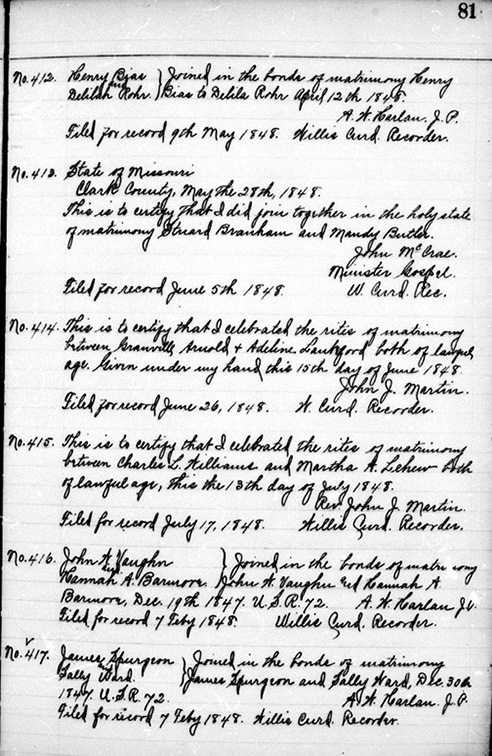 81
No. 412. Henry Bias } Joined in the bonds of matrimony Henry
and
Delilah Rohr. } Bias to Delila Rohr April 12th 1848.
A. W. Harlan. J. P.
Filed for record 9th May 1848. Willis Curd. Recorder.
No. 413. State of Missouri
Clark County, May the 28th, 1848.
This is to certify that I did join together in the holy state
of matrimony Stuard Branham and Mandy Butler.
John McCrae.
Minister Gospel.
Filed for record June 5th 1848. W. Curd. Rec.
No. 414. This is to certify that I celebrated the rites of matrimony
between Granville Arnold & Adeline Lankford both of lawful
age. Given under my hand this 15th day of June 1848.
John J. Martin.
Filed for record June 26, 1848. W. Curd. Recorder.
No. 415. This is to certify that I celebrated the rites of matrimony
between Charles L. Williams and Martha A. Lehew both
of lawful age, this the 13th day of July 1848.
Rev. John J. Martin.
Filed for record July 17, 1848. Willis Curd. Recorder.
No. 416. John W. Vaughn } Joined in the bonds of matrimony
and
Hannah A. Barmore. John W. Vaughn and Hannah A.
Barmore, Dec. 19th 1847. U.S.R. 72. A. W. Harlan J.P.
Filed for record 7 Feby 1848. Willis Curd. Recorder.
No. 417. James Spurgeon } Joined in the bonds of matrimony
Sally Ward. } James Spurgeon and Sally Ward, Dec. 30th
1847. U.S.R. 72. A. W. Harlan J.P.
Filed for record 7 Feby 1848. Willis Curd. Recorder.